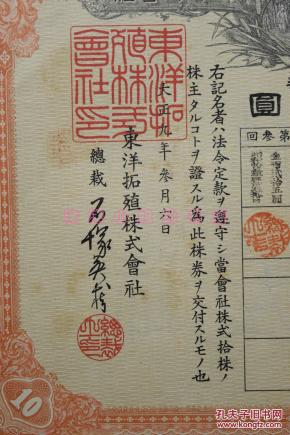 右記名者ハ法令定款ヲ遵守シ當會社株式拾株ノ
株主タルコトヲ證スル為此株券ヲ交付スルモノ也
大正九年參月六日
東洋拓殖株式會社
總裁 石塚英藏
東洋拓
殖株式
會社印
總裁
之印
圓
第參回
10